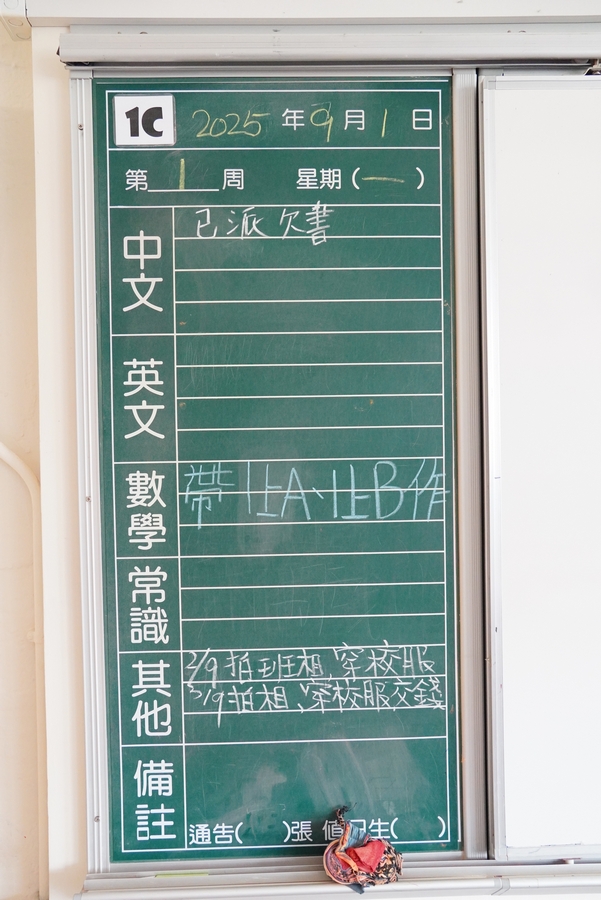 1C 2025 年 9 月 1 日
第 1 周 星期 ( 一 )
中文 已派欠書
英文
數學 帶 1上A、1上B作
常識
其他 2/9拍班相、穿校服
3/9拍相、穿校服交錢
備註
通告( )張 值日生( )